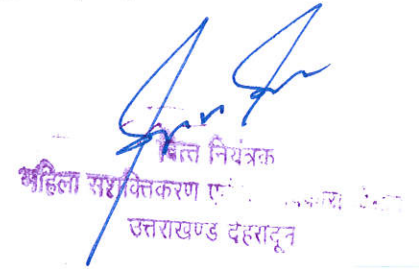 वित्त नियंत्रक
महिला सशक्तिकरण एवं
उत्तराखण्ड देहरादून